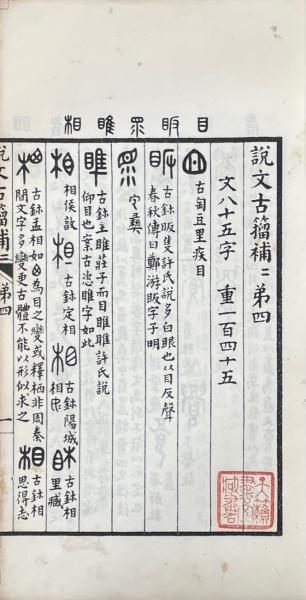 相睢眾眅目
說文古籀補二第四
文八十五字 重一百四十五
古匋豆里疾目
古鉥眅隻許氏說多白眼也从目反聲
春秋傳曰鄭游眅字子明
古鉥王睢莊子而目睢睢許氏說
仰目也業古恣睢字如此
相侯敦
古鉥定相
古鉥陽城
相忠
古鉥相
里臧
古鉥孟相如
為目之變或釋栖非周秦
間文字多變更古體不能以形似求之
古鉥相
思得志
說文古籀補二 第四
一